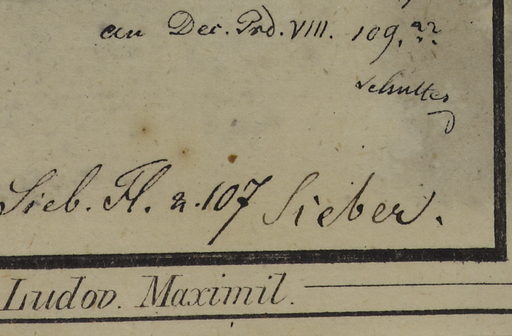 an Dec. Prd. VIII. 109. ??
Schultes
Sieb. Fl. n. 107 Sieber.
Ludov. Maximil.